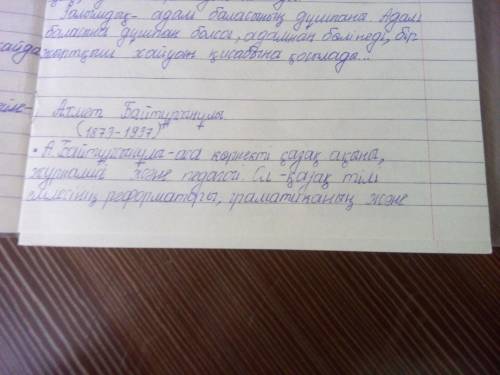 Ғалымдық - адам баласының душпаны. Адам
баласына душпан болсы, адамнан бөлінеді, бір
жыртқыш хайуан қисабына қосылады...
Ахмет Байтұрғанұлы.
(1873-1937)
• А. Байтұрғанұлы - аса көрнекті қазақ ақыны,
журналист және педагог. Ол - қазақ тіл
білімінің реформаторы, граматиканың және